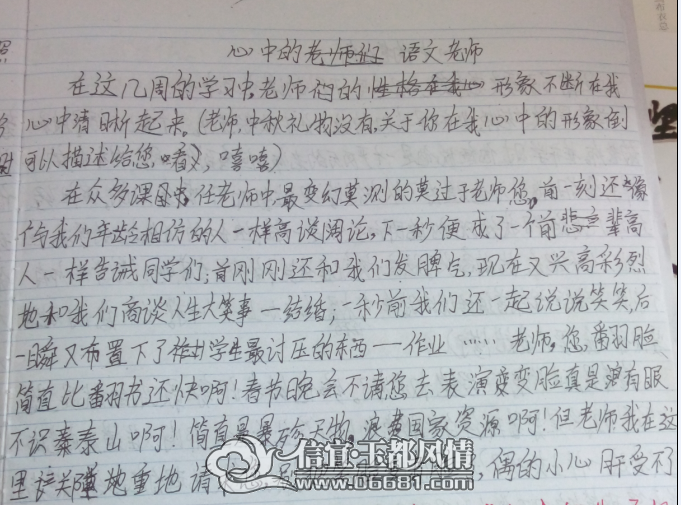 心中的老师们 语文老师
在这几周的学习中,老师们的性格在我心形象不断在我
心中清晰起来。(老师,中秋礼物没有,关于你在我心中的形象倒
可以描述给您看,嘻嘻)
在众多课任老师中,最变幻莫测的莫过于老师您,前一刻还像
与我们年龄相仿的人一样高谈阔论,下一秒便成了一个前辈高
人一样告诫同学们;前刚刚还和我们发脾气,现在又兴高彩烈
地和我们商谈人生大笑事—结婚;一秒前我们还一起说说笑笑,后
一瞬又布置下了学生最讨压的东西—作业……老师,您,翻羽脸
简直比翻羽书还快啊!春节晚会不请您去表演变脸真是没有眼
不识泰泰山啊!简直是暴殄天物,浪费国家资源啊!但老师我在这
里该郑重地重地请
偶的小心肝受不了
信宜·玉都风情
www.06681.com